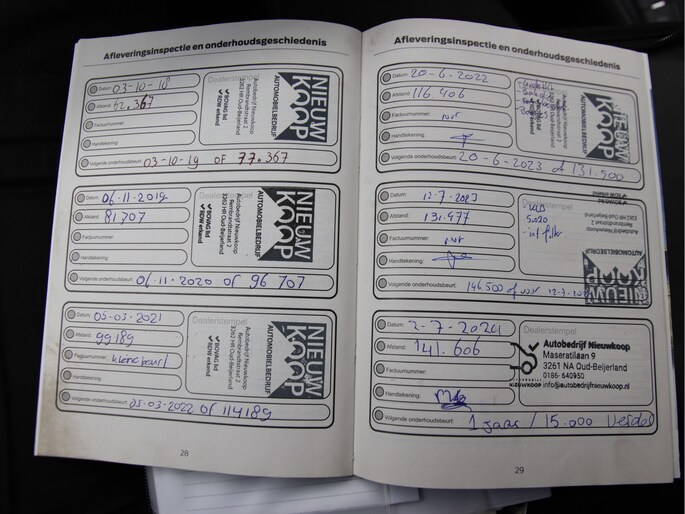 Afleveringsinspectie en onderhoudsgeschiedenis
Datum: 03-10-18
Afstand: 62.367
Factuurnummer:
Handtekening:
Volgende onderhoudsbeurt: 03-10-19 OF 77.367
Dealerstempel
NIEUW
KOOP
AUTOMOBIELBEDRIJF
Autobedrijf Nieuwkoop
Rembrandtstraat 2
3262 HR Oud-Beijerland
BOVAG lid
RDW erkend
Datum: 06-11-2019
Afstand: 81707
Factuurnummer:
Handtekening:
Volgende onderhoudsbeurt: 06-11-2020 of 96 707
NIEUW
KOOP
AUTOMOBIELBEDRIJF
Autobedrijf Nieuwkoop
Rembrandtstraat 2
3262 HR Oud-Beijerland
BOVAG lid
RDW erkend
Datum: 05-03-2021
Afstand: 99189
Factuurnummer: kleine beurt
Handtekening:
Volgende onderhoudsbeurt: 05-03-2022 OF 114189
Dealerstempel
NIEUW
KOOP
AUTOMOBIELBEDRIJF
Autobedrijf Nieuwkoop
Rembrandtstraat 2
3262 HR Oud-Beijerland
BOVAG lid
RDW erkend
28
Afleveringsinspectie en onderhoudsgeschiedenis
Datum: 20-6-2022
Afstand: 116 406
Factuurnummer: nvt
Handtekening:
Volgende onderhoudsbeurt: 20-6-2023 of 131.500
NIEUW
KOOP
AUTOMOBIELBEDRIJF
Datum: 12-7-2023
Afstand: 131.477
Factuurnummer: nvt
Handtekening:
Volgende onderhoudsbeurt: 146500 of voor 12-7-
NIEUW
KOOP
AUTOMOBIELBEDRIJF
Autobedrijf Nieuwkoop
Rembrandtstraat 2
3262 HR Oud-Beijerland
Datum: 2-7-2024
Afstand: 141.606
Factuurnummer:
Handtekening:
Volgende onderhoudsbeurt: 1 jaar / 15.000 verder
Dealerstempel
Autobedrijf Nieuwkoop
Maseratilaan 9
3261 NA Oud-Beijerland
0186- 640950
NIEUWKOOP info@autobedrijfnieuwkoop.nl
29